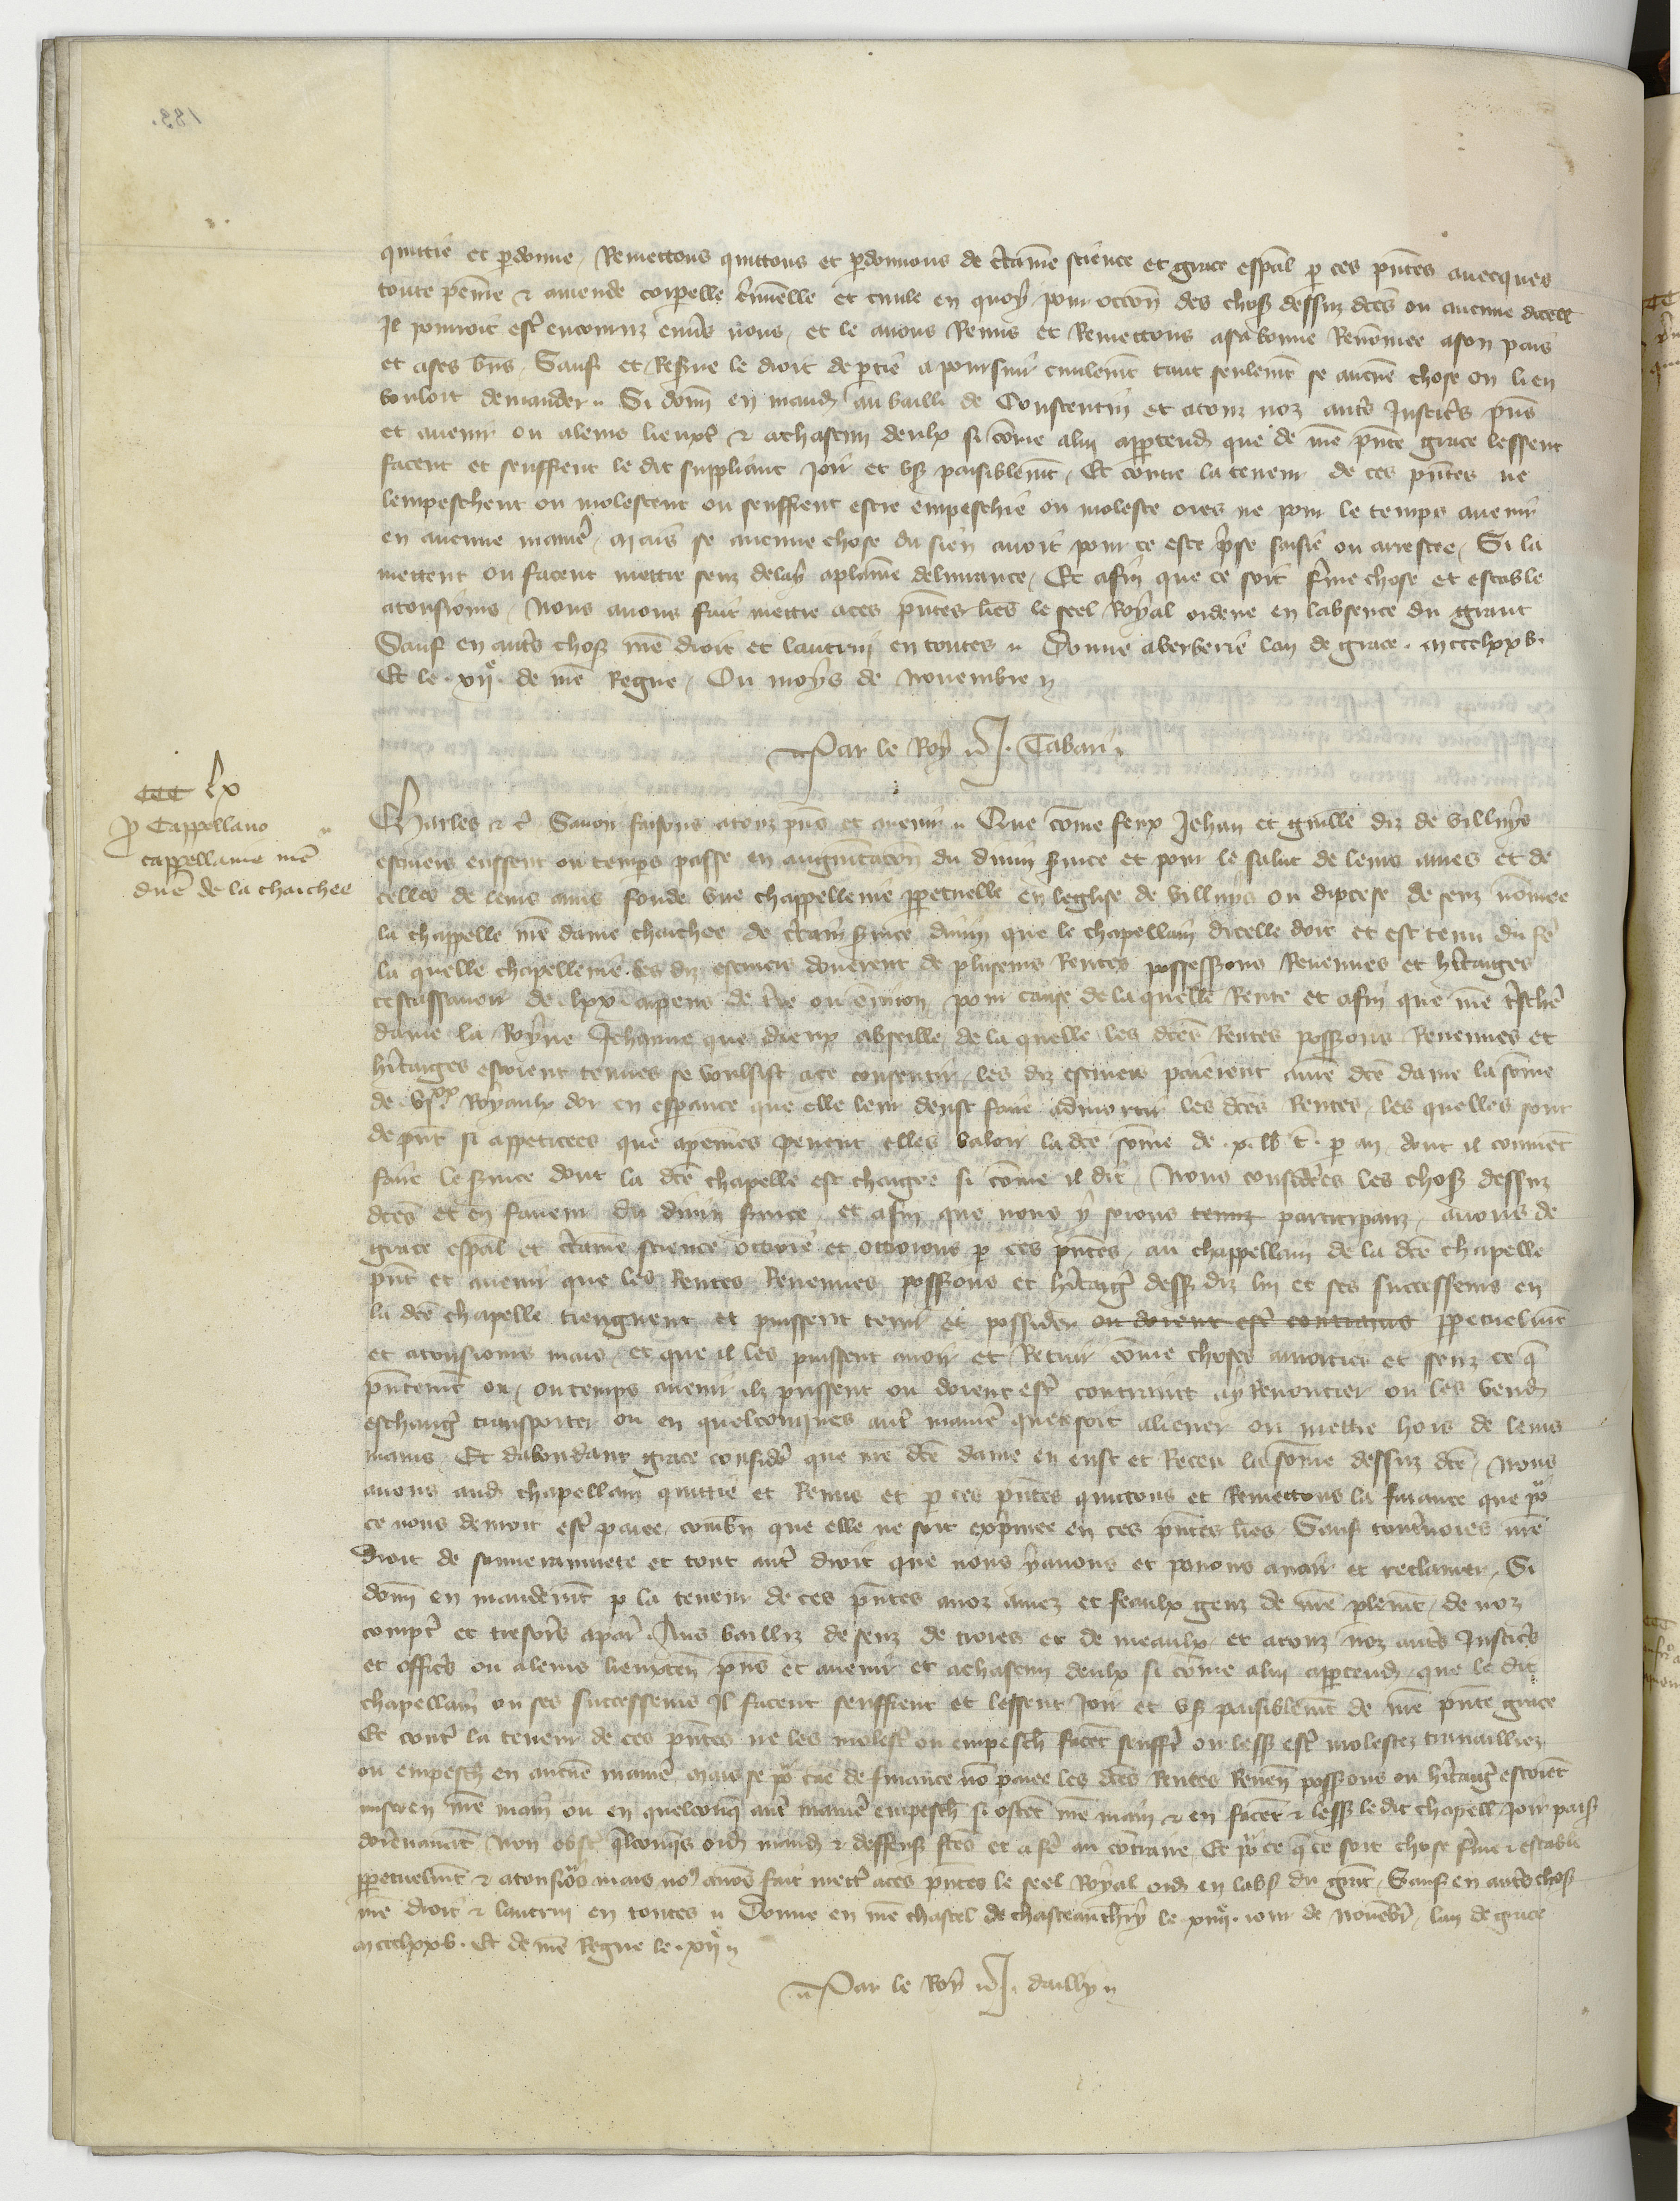 quittie et pdonne, Remettons quittons et pdonnons de ctaine science et grace espal p ces pntes auecques
toute peine & amende corpelle cminelle et ciuile en quoy pour occon des chos dessuz dces ou aucune dicell
Il pourroit est encouruz enuers nous, et le auons Remis et Remettons asa bonne Renommee ason pais
et ases bns, Sauf et Resue le droit de ptie a poursuir ciuilemt tant seulemt se aucune chose on lien
vouloit demander. Si donn en mand au bailli de Constentin et atouz noz autres Justiciers pns
et auenir ou aleurs lieuxt & achascun deulx si come alui apptend que de nre pnte grace lessent
facent et seuffrent le dit suppliant Joir et us paisiblemt, Et contre la teneur de ces pntes ne
lempeschent ou molestent ou seuffrent estre empeschie ou moleste ores ne pour le temps auenir
en aucune maniere, Mais se aucune chose du sien auoit pour ce este prise saisie ou arrestee, Si la
mettent ou facent mettre senz delay aplaine deliurance, Et afin que ce soit ferme chose et estable
atousiours, Nous auons fait mettre aces pntes lres le seel Royal ordene en labsence du grant
Sauf en autres chos nre droit et lautruy en toutes. Donne aberberie lan de grace. mccclxxv.
Et le .xije. de nre Regne, Ou moys de Nouembre
Par le Roy J. Tabari
ccc lx
p Cappellano
cappellanie nre
dne de la chaichee
Charles & c Sauoir faisons atouz pns et auenir. Que come feux Jehan et guille diz de villuys
escuiers eussent ou temps passe en augmtacon du diuin seruice et pour le salut de leurs ames et de
celles de leurs amis fonde une chappellenie ppetuelle en leglise de villuys ou diocese de senz nommee
la chappelle nre dame chaichee de ctain seruice diuin que le chapellain dicelle doit et est tenu du fe
la quelle chapellenie les diz escuiers douerent de pluseurs Rentes possessions Reuenues et hitaiges
cestassauoir de .lxx. arpens de tre ou enuiron pour cause de laquelle Rente et afin que nre tschere
dame la Royne Jehanne que dieux absoille, de la quelle les dces Rentes possions Reuenues et
hitaiges estoient tenues se voulsist ace consentir, les diz escuiers paierent anre dce dame la some
de Royaulx dor en espance que elle leur deust faire admortir les dces Rentes, les quelles sont
de pnt si appeticees que apeines peuent elles valoir la dce some de .x. lb t. p an, dont il conuient
faire le seruice dont la dce chapelle est chargee si come il dit, Nous considres les chos dessuz
dces et en faueur du diuin seruice, et afin que nous y soions tenuz participanz, auons de
grace espal et ctaine science ottroie et ottroions p ces pntes, au chappellain de la dce chapelle
pnt et auenir que les Rentes Reuenues possions et hitaig dess diz lui et ses successeurs en
la dce chapelle tiengnent et puissent tenir et possider ou doient est contrains ppetuelmt
et atousiours mais, et que il les puissent auoir et Retenir come choses amorties et senz ce q
pntemt ou, ou temps auenir ilz puissent ou doient est contraint ay Renoncier ou les vend
eschang transporter ou en quelconques autre maniere que ce soit aliener ou mettre hors de leurs
mains, Et dabondant grace consider que nre dce dame en eust et Receu la some dessuz dce, Nous
auons aud chapellain quittie et Remis et p ces pntes quittons et Remettons la finance que po
ce nous deuroit est paiee, combn que elle ne soit exprimee en ces pntes lres, Sauf touteuoies nre
droit de souuerainnete et tout autre droit que nous yauons et pouons auoir et reclamer. Si
donn en mandemt p la teneur de ces pntes anoz amez et feaulx genz de nre plemt, de noz
compt et tresors apar. Aus bailliz de senz de troies et de meaulx, et atouz noz autres Justiciers
et officrs ou aleurs lieuxten pns et auenir et achascun deulx si come alui apptend, que le dit
chapellain ou ses successeurs Il facent seuffrent et lessent Joir et us paisiblemt de nre pnte grace
Et contre la teneur de ces pntes ne les molest ou empesch facet seuffr ou less est molestez trauailliez
ou empesch en aucune maniere, Mais se po cae de finance no paiee les dces Rentes Reuen possions ou hitaig estoiet
mises en nre main ou en quelconq autre maniere empesch si ostet nre main & en facet & less le dit chapell Joir pais
dorenauat non obst qlconqs ord mand & deffens ftes et afe au contraire, Et po ce q ce soit chose fme & estable
ppetuelmt & atousiors mais no auos fait mettre aces pntes le seel Royal ord en labs du grnt, Sauf en autres chos
nre droit & lautruy en toutes. Donne en nre chastel de chasteauthiry le .xiiije. iour de Nouebr, lan de grace
mccclxxv. Et de nre Regne le .xije.
Par le Roy J. dailly